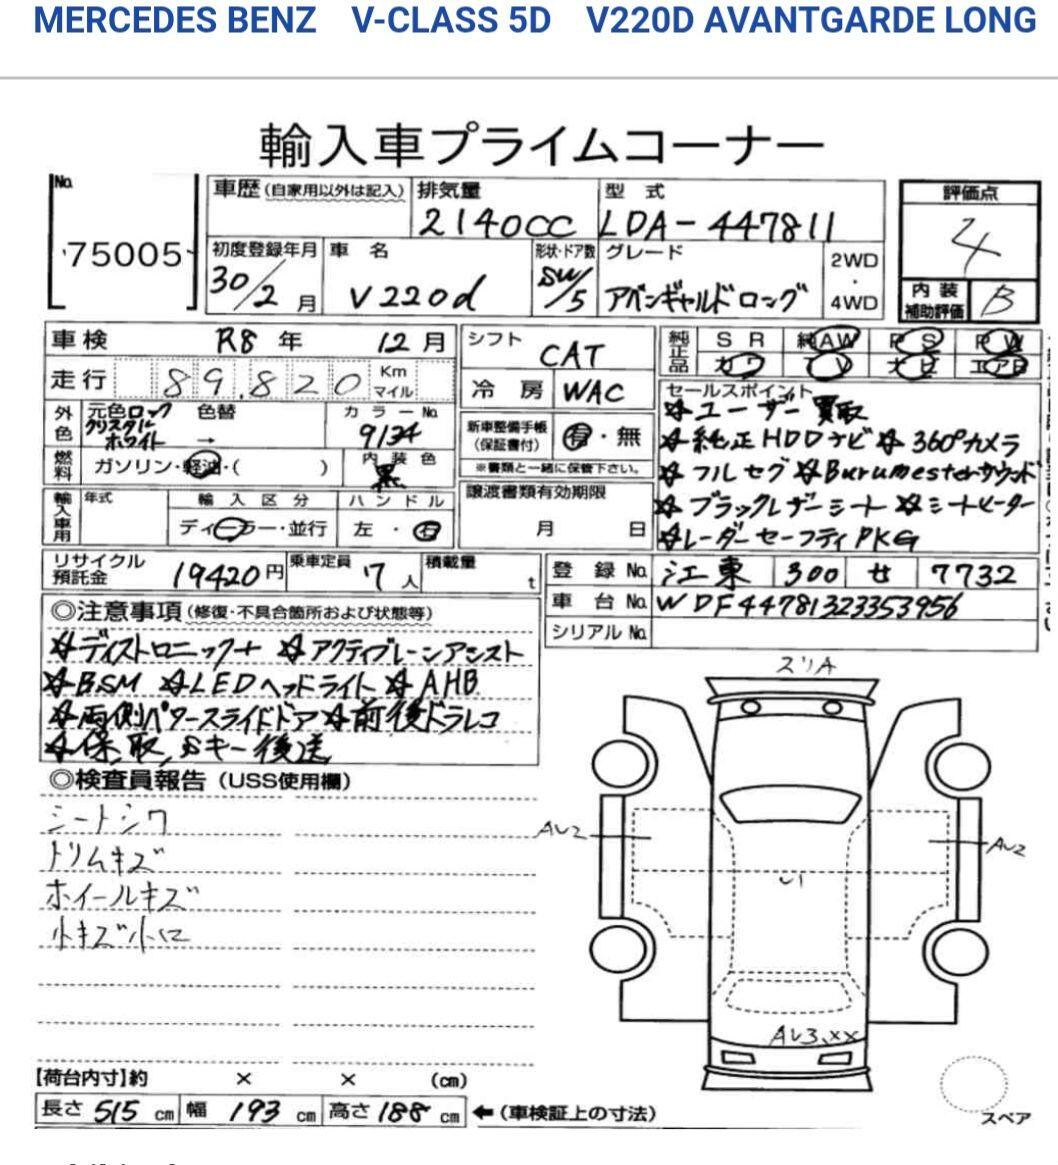 MERCEDES BENZ V-CLASS 5D V220D AVANTGARDE LONG
輸入車プライムコーナー
No. 75005
車歴 (自家用以外は記入)
排気量 2140CC
型式 LDA-447811
評価点 4
初度登録年月 30/2月
車名 V220d
形状・ドア数 SW/5
グレード アバンギャルドロング
2WD・4WD
内装補助評価 B
車検 R8年 12月
シフト CAT
純正品 SR 純AW PS PW
走行 89,820 Km マイル
冷房 WAC
カワ TV ナビ エアB
外色 元色ロック クリスタルホワイト 色替 →
カラーNo. 9134
新車整備手帳 (保証書付) 有・無
※書類と一緒に保管下さい。
セールスポイント
☆ユーザー買取
☆純正HDDナビ☆360°カメラ
☆フルセグ☆Burumesterサウンド
☆ブラックレザーシート☆シートヒーター
☆レーダーセーフティPKG
燃料 ガソリン・軽油・( )
内装色 黒
輸入車用 年式 輸入区分 ディーラー・並行 ハンドル 左・右
譲渡書類有効期限 月 日
リサイクル預託金 19420円
乗車定員 7人
積載量 t
登録No. 江東 300 せ 7732
車台No. WDF44781323353956
シリアルNo.
◎注意事項 (修復・不具合箇所および状態等)
☆ディストロニック+ ☆アクティブレーンアシスト
☆BSM ☆LEDヘッドライト☆AHB
☆両側パワースライドドア☆前後ドラレコ
☆保,取,Sキー後送
◎検査員報告 (USS使用欄)
シートシワ
トリムキズ
ホイールキズ
小キズ小凹
スリA
AU2
AU2
U1
AU3,XX
スペア
【荷台内寸】約 × × (cm)
長さ 515 cm 幅 193 cm 高さ 188 cm ←(車検証上の寸法)